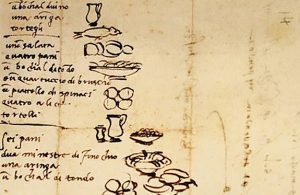 ū bochal di vino
una aringa
tortegli
una salata
quatro pani
ū bochal di tōdo
e ū quartuccio di bruscho
ū piatello di spinaci
quatro alice
tortelli
sei pani
dua minestre di finochio
una aringa
ū bochal di tondo